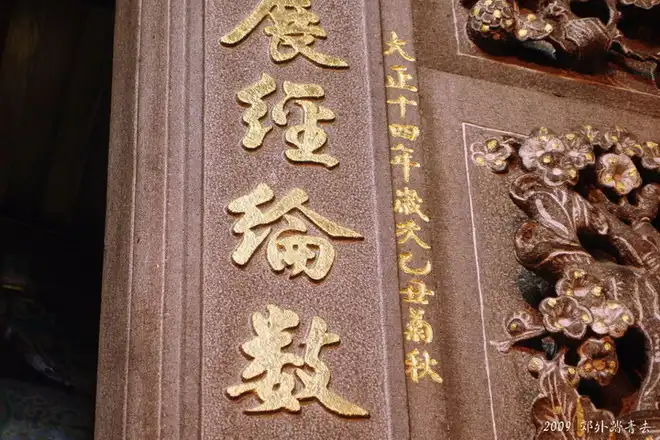 大正十四年歲次乙丑菊秋
展經綸數
2009 郊外踏青去